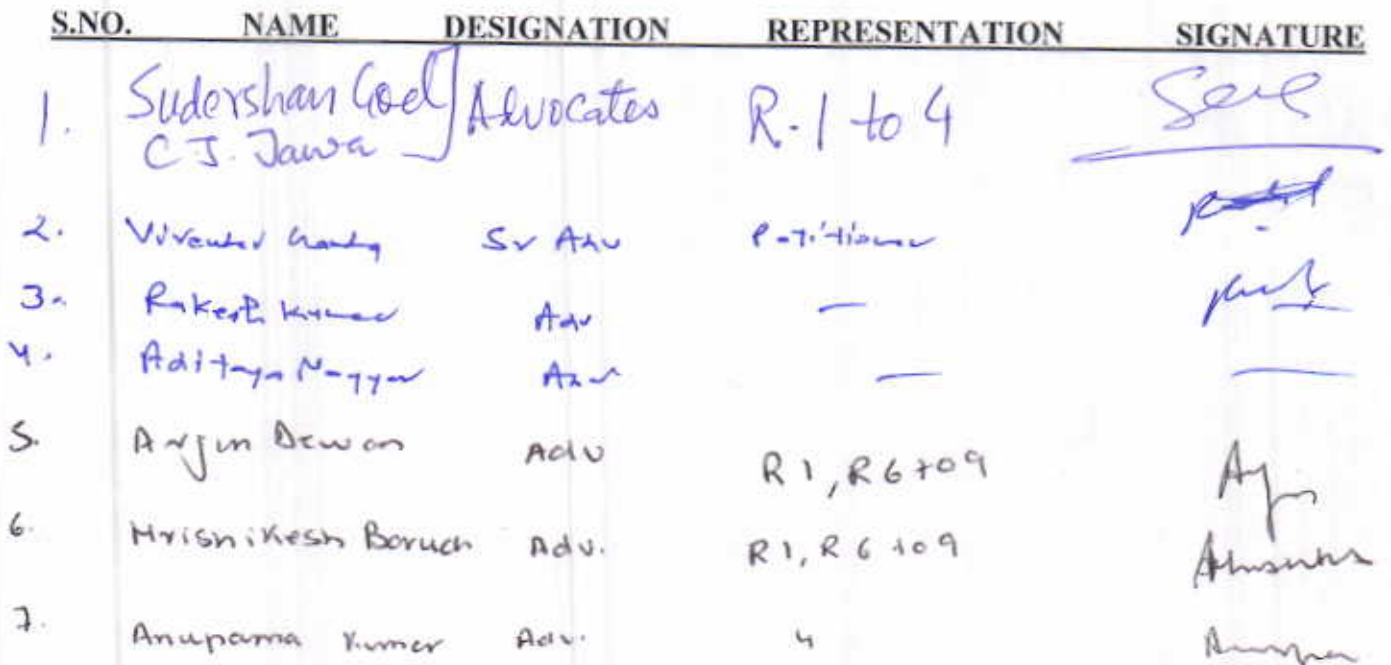 S.NO. NAME DESIGNATION REPRESENTATION SIGNATURE
1. Sudershan Goel Advocates R-1 to 4
C J. Jawa
2. Virender Sr Adv Petitioner
3. Rakesh Kumar Adv —
4. Aditaya Nayyar Adv — —
5. Arjun Dewan Adv R1, R6 to 9
6. Hrishikesh Baruah Adv. R1, R6 to 9
7. Anupama Kumar Adv. "